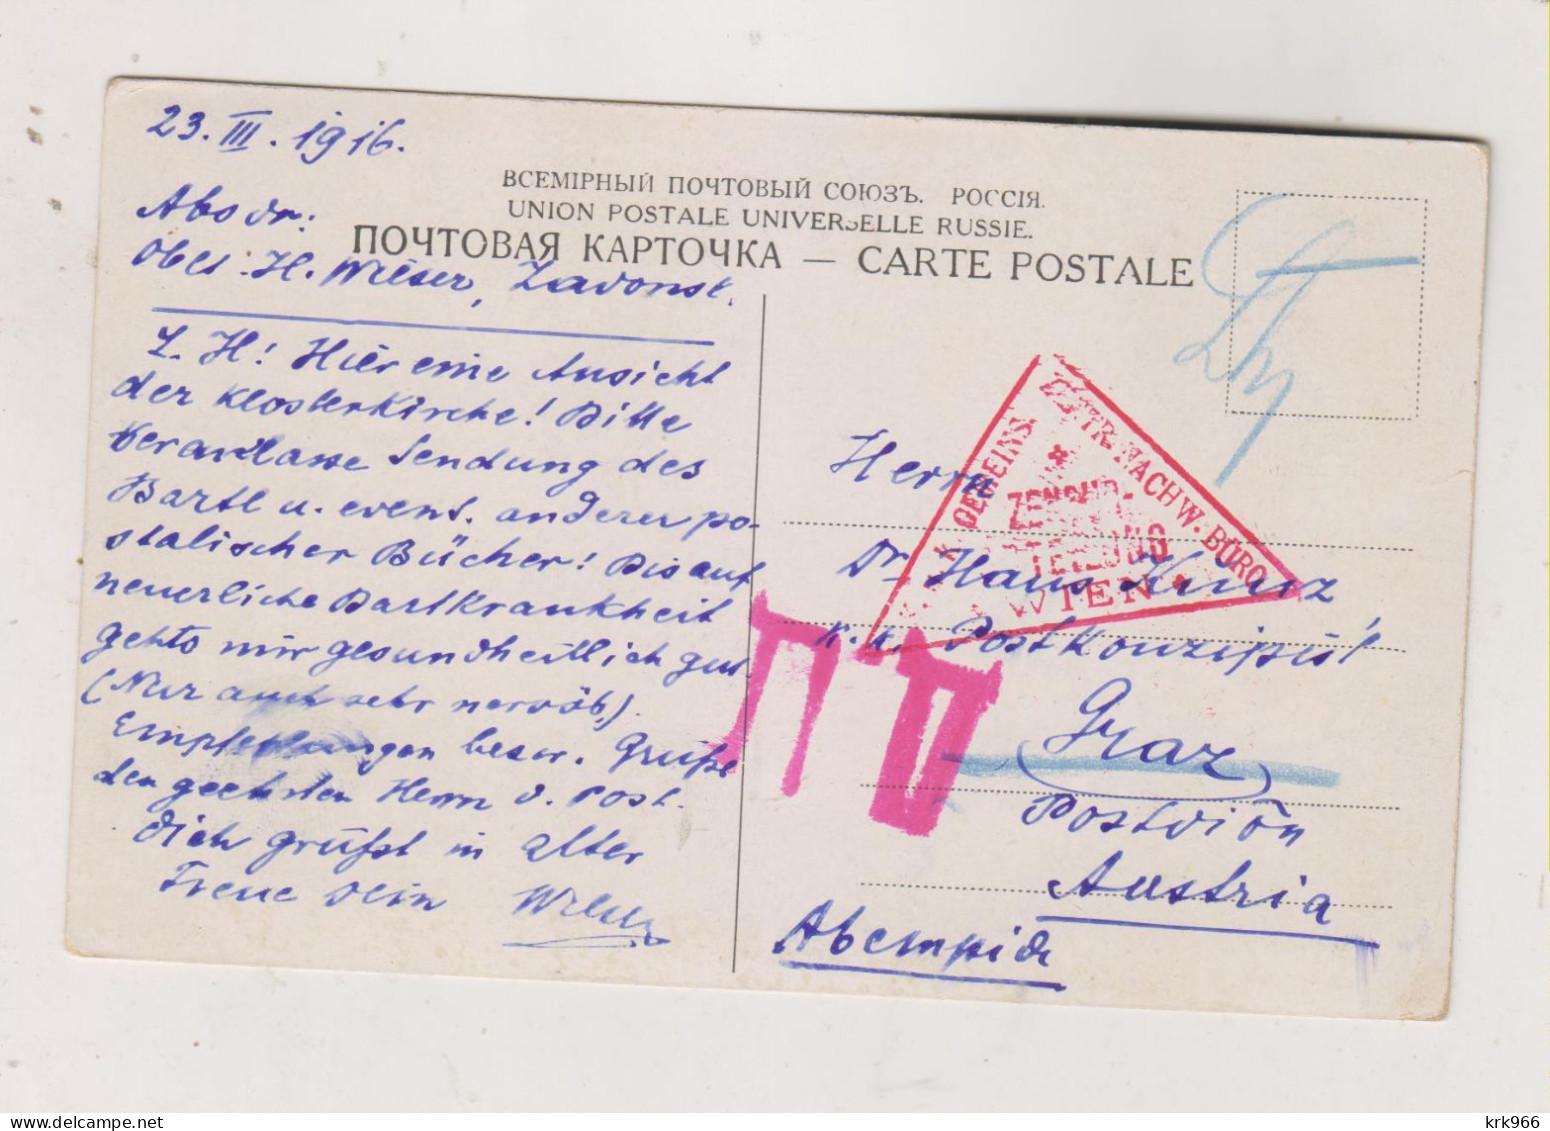 23. III. 1916.
ВСЕМІРНЫЙ ПОЧТОВЫЙ СОЮЗЪ. РОССІЯ.
UNION POSTALE UNIVERSELLE RUSSIE.
ПОЧТОВАЯ КАРТОЧКА — CARTE POSTALE
Absdr:
Oblt. H. Wieser, Zavonsk.
L. H! Hier eine Ansicht
der Klosterkirche! Bitte
veranlasse Sendung des
Bartl u. event. anderer po-
stalischer Bücher! Bis auf
neuerliche Bartkrankheit
gehts mir gesundheitlich gut.
(Nur auch sehr nervös.)
Empfehlungen besw. Grüße
den geehrten Herrn d. Post.
Dich grüßt in alter
Treue dein
GEMEINS. ZENTR. NACHW. BÜRO
ZENSUR-
ABTEILUNG
WIEN
Herrn
Dr Hans Kunz
k.k. Postkonzipist
Graz
Postdion
Austria
krk966